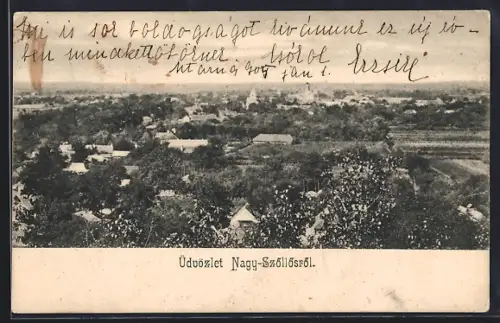 Mi is sok boldogságot kivánunk ez új év-
ben mindkettőtöknek. Csókol
905 jan 1. Erzsi
Üdvözlet Nagy-Szőllősről.